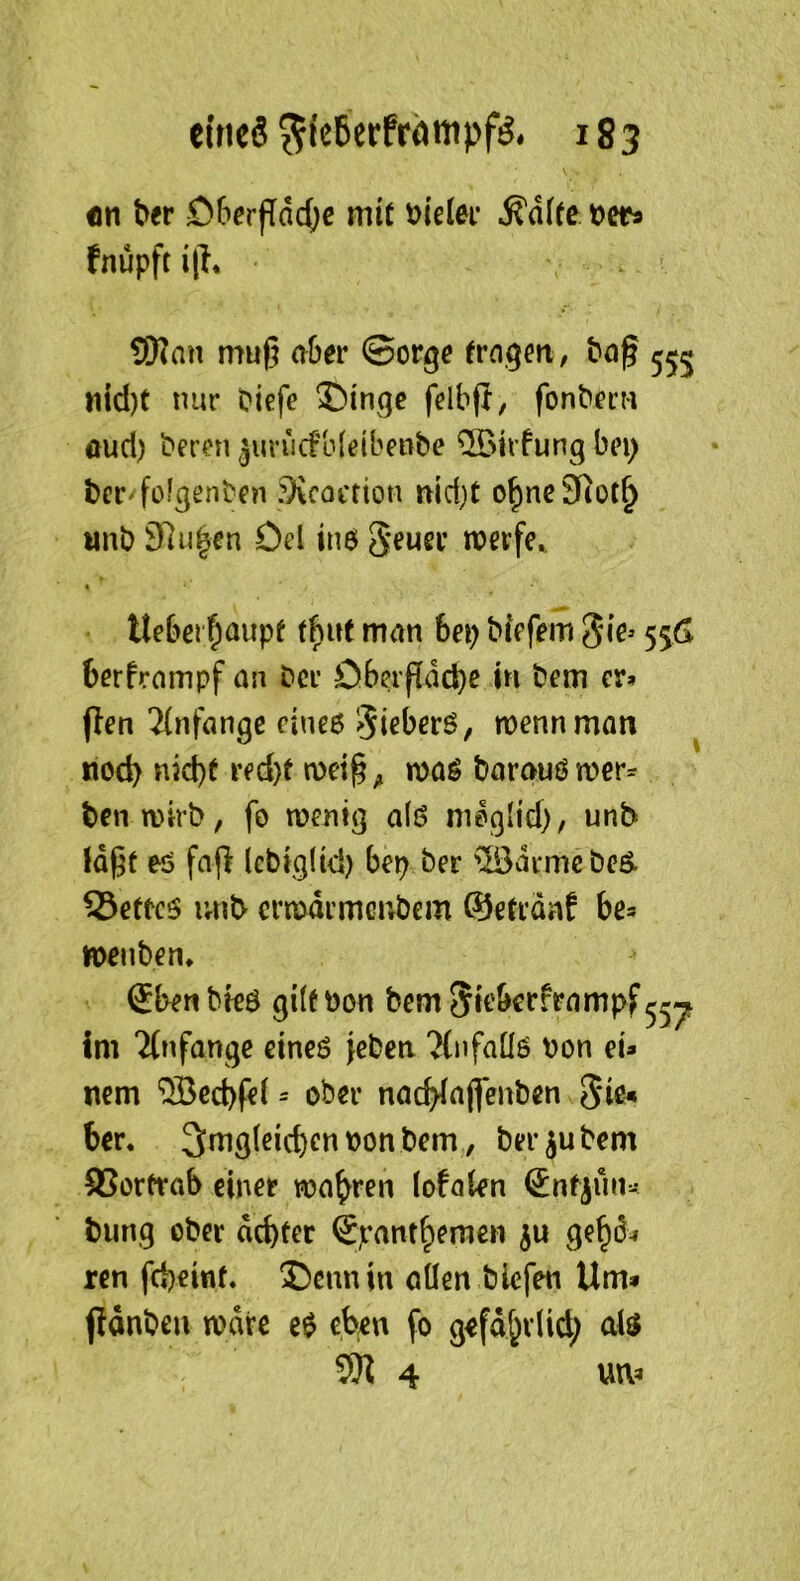 eines Fieberkrampfs. 183
an der Oberfläche mit vieler Kälte ver-
knüpft ist.
Man muß aber Sorge tragen, daß 555
nicht nur diese Dinge selbst, sondern
auch deren zurückbleibende Wirkung bey
der folgenden Reaction nicht ohne Noth
und Nutzen Oel ins Feuer werfe.
Ueberhaupt thut man bey diesem Fie- 556
berkrampf an der Oberfläche in dem er-
sten Anfange eines Fiebers, wenn man
noch nicht recht weiß, was daraus wer-
den wird, so wenig als möglich, und
läßt es fast lediglich bey der Wärme des
Bettes und erwärmendem Getränk be-
wenden.
Eben dies gilt von dem Fieberkrampf 557
im Anfange eines jeden Anfalls von ei-
nem Wechsel- oder nachlassenden Fie-
ber. Imgleichen von dem, der zu dem
Vortrab einer wahren lokalen Entzün-
dung oder ächter Exanthemen zu gehö-
ren scheint. Denn in allen diesen Um-
ständen wäre es eben so gefährlich als
M 4 un-